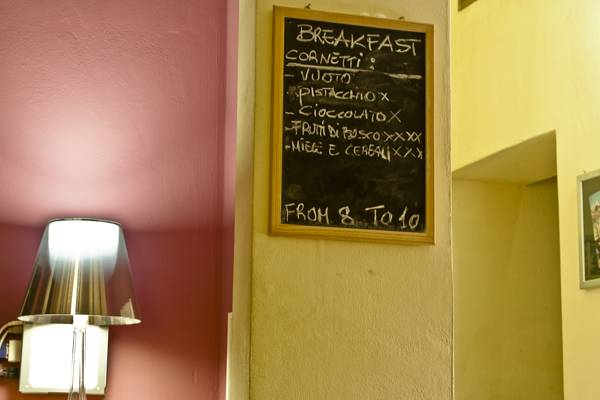 BREAKFAST
CORNETTI:
- VUOTO
- PISTACCHIO X
- CIOCCOLATO X
- FRUTTI DI BOSCO XXXX
- MIELE E CEREALI XXX
FROM 8 TO 10